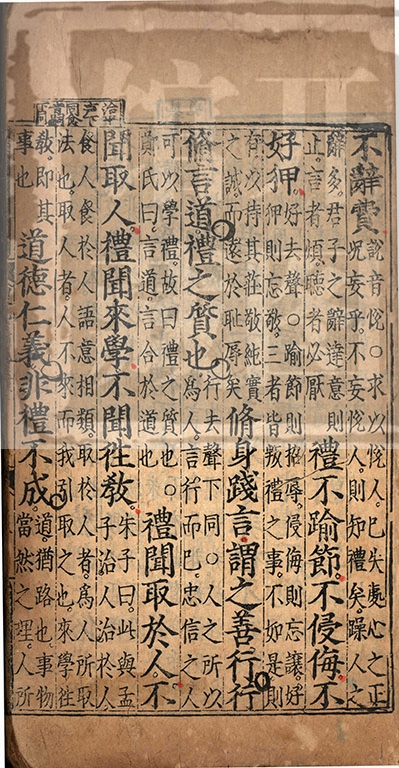 不辭費說音悅○求以悅人已失處心之正
況妄乎不妄悅人則知禮矣躁人之
辭多君子之辭達意則
止言者煩聽者必厭禮不踰節不侵侮不
好狎好去聲○踰節則招辱侵侮則忘讓好
狎則忘敬三者皆叛禮之事不如是則
有以持其莊敬純實
之誠而遠於恥辱矣脩身踐言謂之善行行
脩言道禮之質也行去聲下同○人之所以
為人言行而已忠信之人
可以學禮故曰禮之質也○
鄭氏曰言道言合於道也禮聞取於人不
治平
聲下
同食
音嗣
下同
聞取人禮聞來學不聞徃教朱子曰此與孟
子治人治於人
食人食於人語意相類取於人者為人所取
法也取人者人不來而我引取之也來學徃
教即其
事也道德仁義非禮不成道猶路也事物
當然之理人所